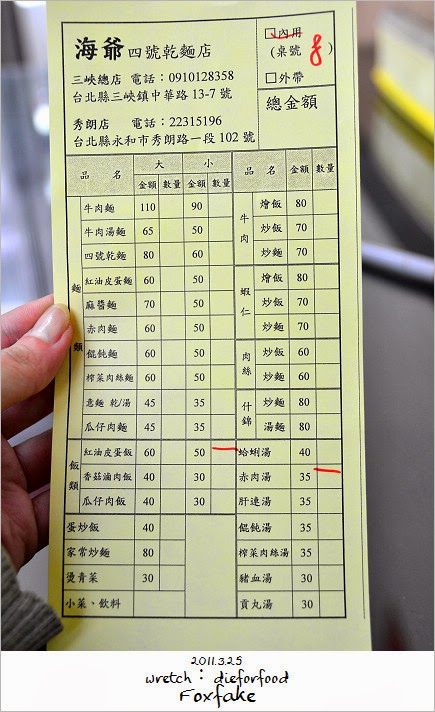 海爺 四號乾麵店
三峽總店 電話：0910128358
台北縣三峽鎮中華路 13-7 號
秀朗店 電話：22315196
台北縣永和市秀朗路一段 102 號
□內用
(桌號 8 )
□外帶
總金額
品名 大 小 品名 金額 數量
金額 數量 金額 數量
麵類
牛肉麵 110 90
牛肉湯麵 65 50
四號乾麵 80 60
紅油皮蛋麵 60 50
麻醬麵 70 50
赤肉麵 60 50
餛飩麵 60 50
榨菜肉絲麵 60 50
意麵 乾/湯 45 35
瓜仔肉麵 45 35
飯類
紅油皮蛋飯 60 50
香菇滷肉飯 40 30
瓜仔肉飯 40 30
蛋炒飯 40
家常炒麵 80
燙青菜 30
小菜、飲料
牛肉
燴飯 80
炒飯 70
炒麵 70
蝦仁
燴飯 80
炒飯 70
炒麵 70
肉絲
炒飯 60
炒麵 60
什錦
炒麵 80
湯麵 80
蛤蜊湯 40
赤肉湯 35
肝連湯 35
餛飩湯 35
榨菜肉絲湯 35
豬血湯 30
貢丸湯 30
2011.3.25
wretch：dieforfood
Foxfake